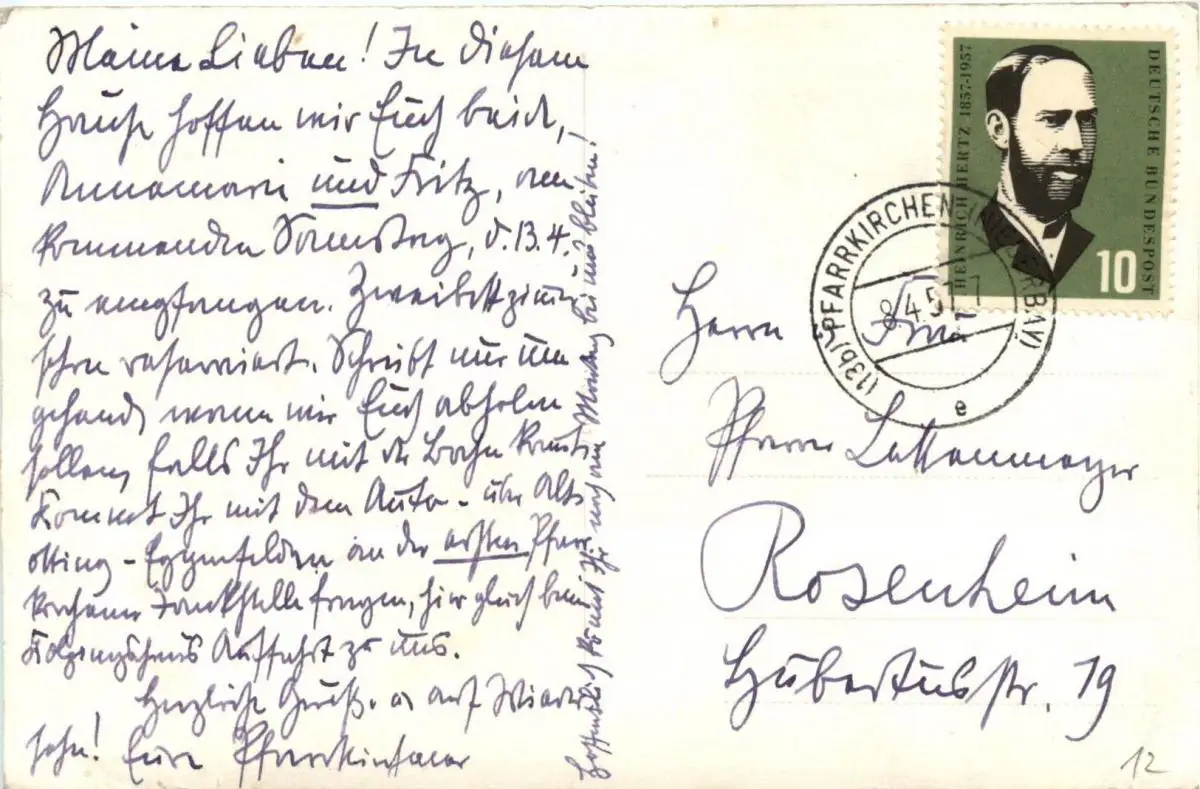 Meine Lieben! In diesem
Hause hoffen wir Euch beide,
Annemarie und Fritz, am
kommenden Samstag, d. 13.4.
zu empfangen. Zweibettzimmer
schon reserviert. Schreibt nur um
gehend, wann wir Euch abholen
sollen, falls Ihr mit der Bahn kommt.
Kommt Ihr mit dem Auto - über Alt-
ötting - Eggenfelden an der ersten Pfarr
kirchener Tankstelle fragen, hier gleich beim
Kolpingshaus Auffahrt zu uns.
Herzliche Grüße u. auf Wieder
sehn! Eure Pfarrkirchner
Hoffentlich könnt Ihr noch am Montag bei uns bleiben!
HEINRICH HERTZ 1857-1957
DEUTSCHE BUNDESPOST
10
(13b) PFARRKIRCHEN (NIEDERBAY)
8.4.57
e
Herrn
Pfarrer Lettenmeyer
Rosenheim
Hubertusstr. 19
12